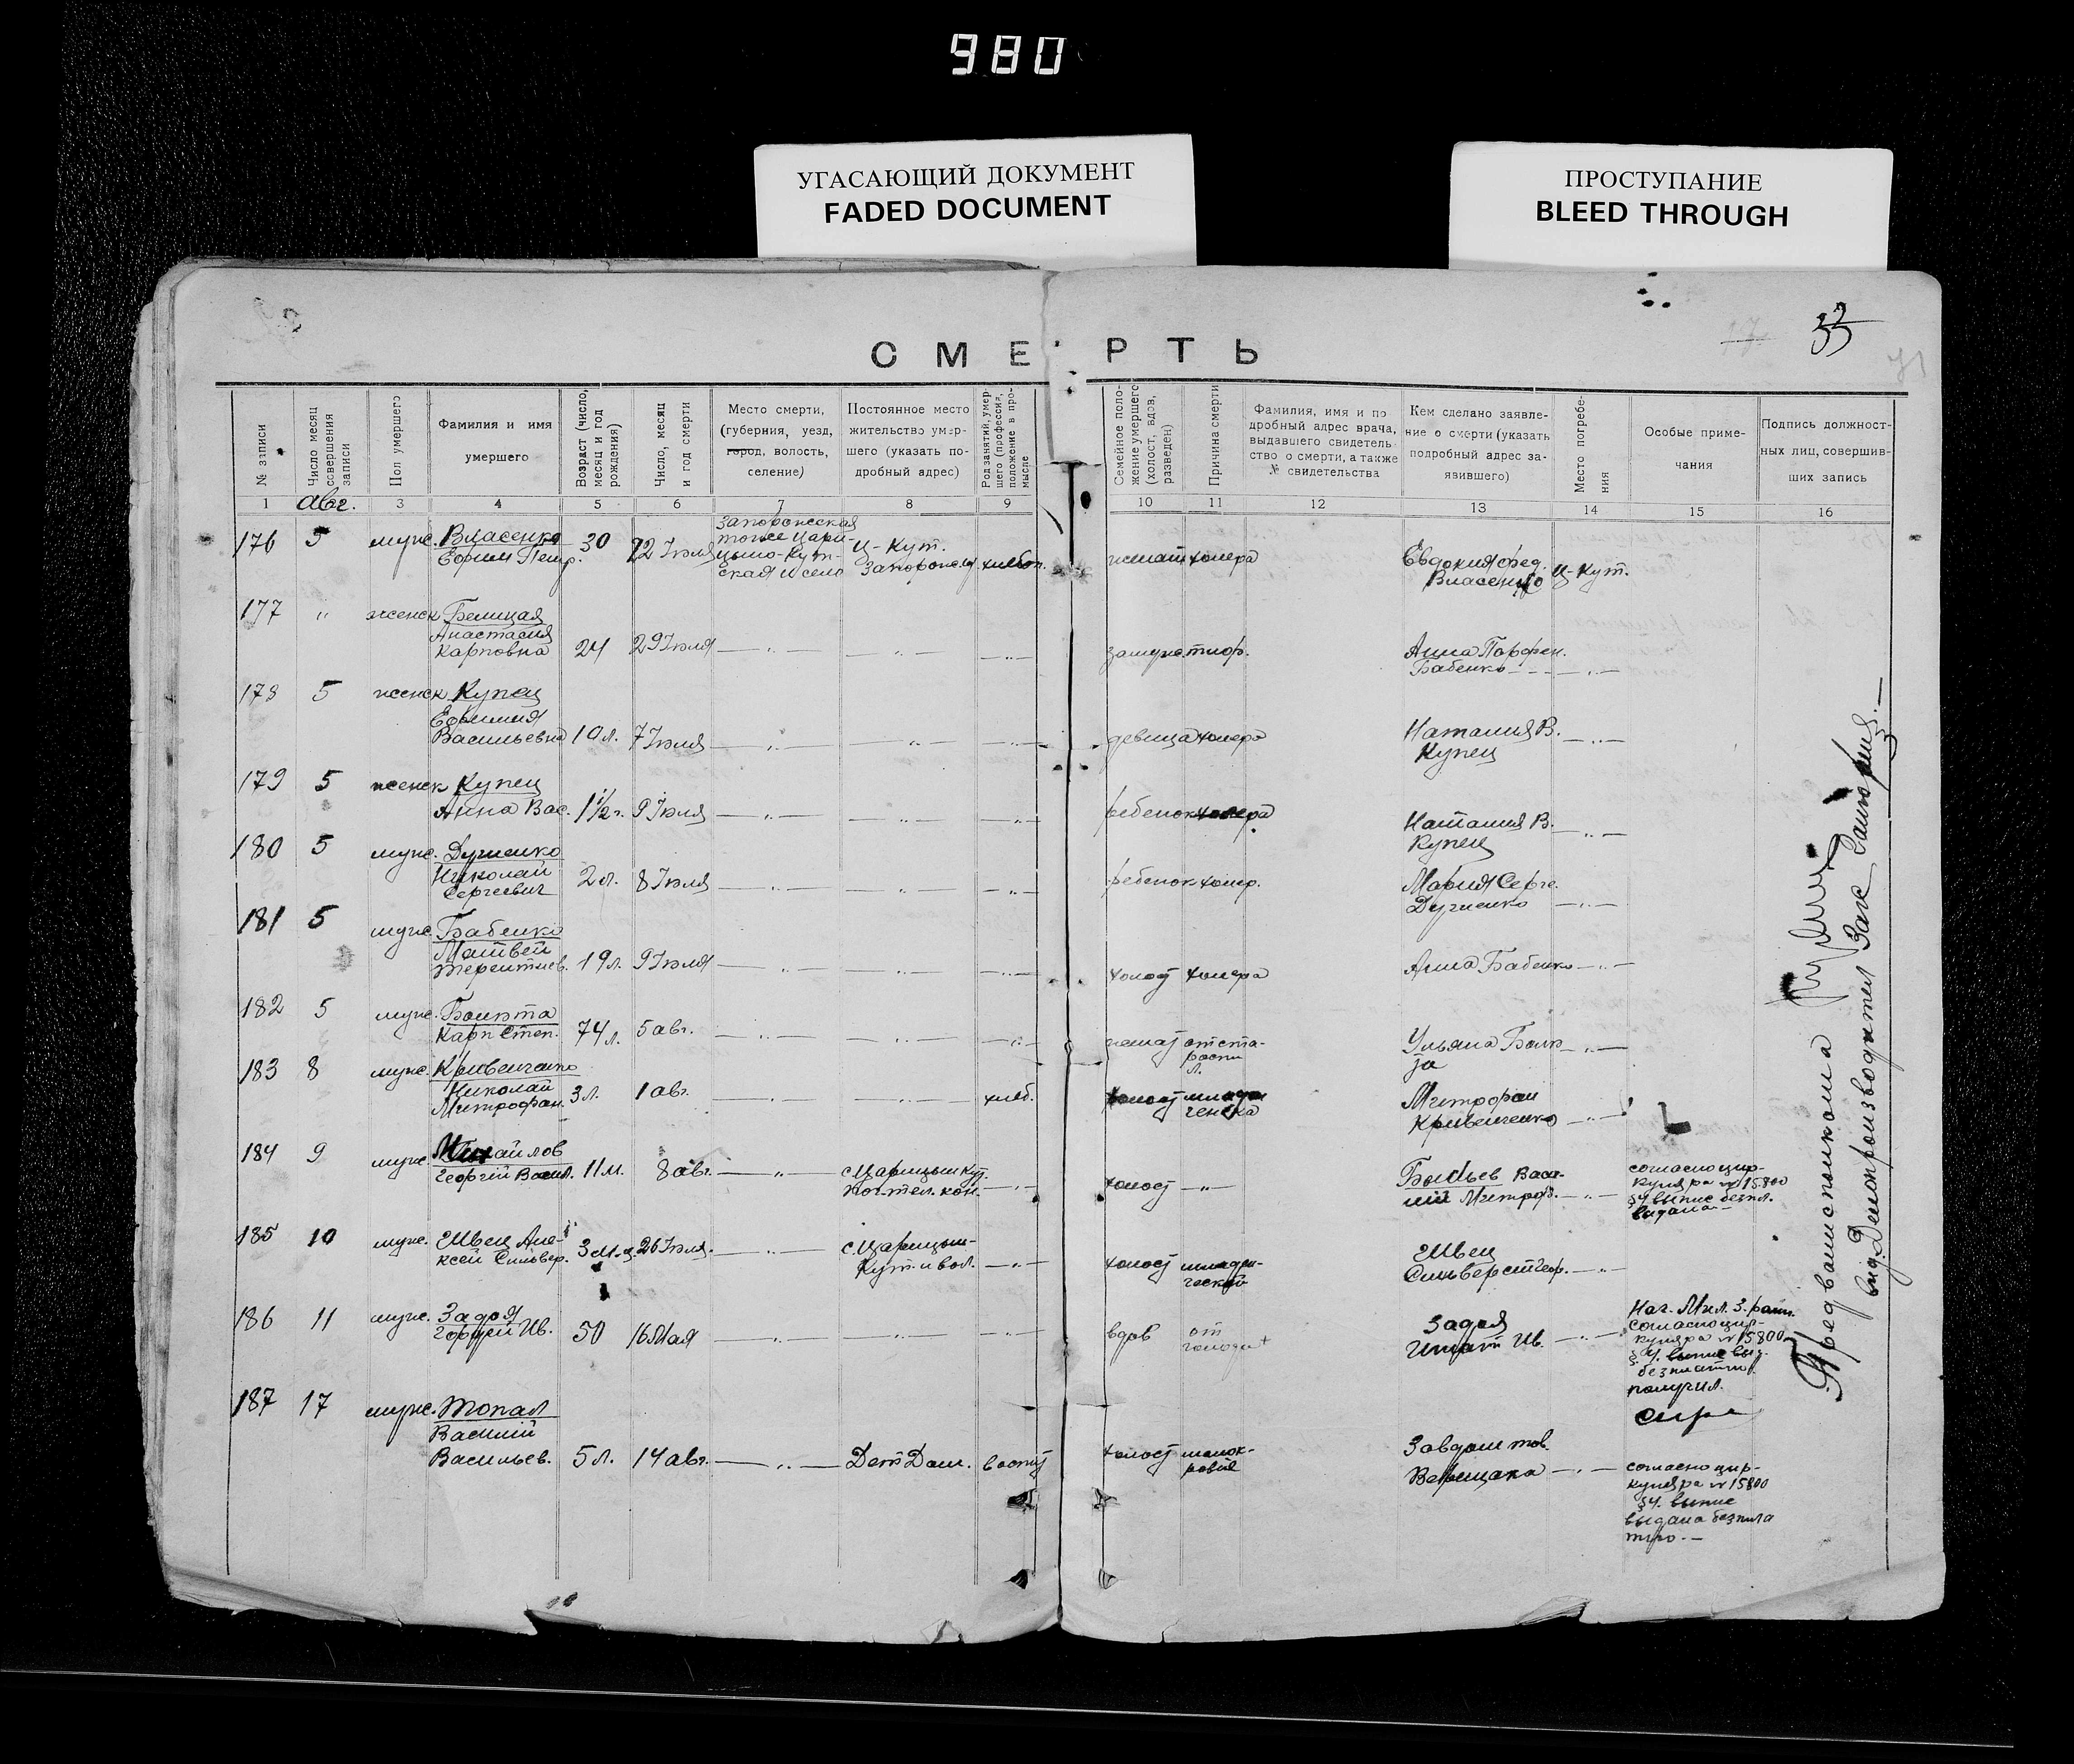 980
УГАСАЮЩИЙ ДОКУМЕНТ
FADED DOCUMENT
ПРОСТУПАНИЕ
BLEED THROUGH
33
СМЕРТЬ
№ записи
Число месяц совершения записи
Пол умершего
Фамилия и имя умершего
Возраст (число, месяц и год рождения)
Число, месяц и год смерти
Место смерти, (губерния, уезд, город, волость, селение)
Постоянное место жительство умершего (указать подробный адрес)
Род занятий, умершего (профессия, положение в промысле
Семейное положение умершего (холост, вдов, разведен)
Причина смерти
Фамилия, имя и подробный адрес врача, выдавшего свидетельство о смерти, а также № свидетельства
Кем сделано заявление о смерти (указать подробный адрес заявившего)
Место погребения
Особые примечания
Подпись должностных лиц, совершивших запись
1 авг. 3 4 5 6 7 8 9 10 11 12 13 14 15 16
176 5 муж. Власенко Ефим Петр. 30 Июля Запорожская тоже Цари-цыно-Кут-ская село Ц-Кут. Запорожск хлебоп. женат холера Евдокия Фед. Власенко Ц-Кут.
177 " женск Белицкая Анастасия Карповна 24 29 Июля — " — — " — — " — замуж. тиф. Анна Парфен. Бабенко — " —
178 5 женск Купец Ефимия Васильевна 10 л. 7 Июля — " — — " — — " — девица холера Наталия В. Купец — " —
179 5 женск Купец Анна Вас. 1½ г. 9 Июля — " — — " — — " — ребенок холера Наталия В. Купец — " —
180 5 муж. Дугиенко Николай Сергеевич 2 л. 8 Июля — " — — " — — " — ребенок холер. Мария Серге. Дугиенко — " —
181 5 муж. Бабенко Матвей Терентиев. 19 л. 9 Июля — " — — " — — " — холост холера Анна Бабенко — " —
182 5 муж. Карп Степ. 74 л. 5 авг. — " — — " — — " — женат от ста-рости Ульяна — " —
183 8 муж. Кривенченко Николай Митрофан. 3 л. 1 авг. — " — — " — хлеб. холост младен ческа Митрофан Кривенченко — " —
184 9 муж. Михайлов Георгий Васил. 11 м. 8 авг. — " — с Царицын Кут. поч-тел. кон. — " — холост — " — Васи-лий Митроф. — " — согласно цир-куляра № 15800 §4 выпис безпл. выдана —
185 10 муж. Швец Але-ксей Сильвер. 3 м-ц. 26 Июля. — " — с Царицын-Кут. и вол. — " — холост младен-ческой Швец Сильверст Геор. — " —
186 11 муж. Задоя Гордей Ив. 50 16 Мая — " — — " — — " — вдов от голода Задоя Игнат Ив. — " — Нач. Мил. 3. рай. согласно цир-куляра № 15800 § 4. выпис вы. безплатно получил.
187 17 муж. Топал Василий Васильев. 5 л. 14 авг. — " — Дет Дом. воспит холост малок-ровия Завдом тов. Верещака — " — согласно цир-куляра № 15800 §4. выпис выдана безпла тно. —
Предволисполкома
вид. Делопроизводител Загс